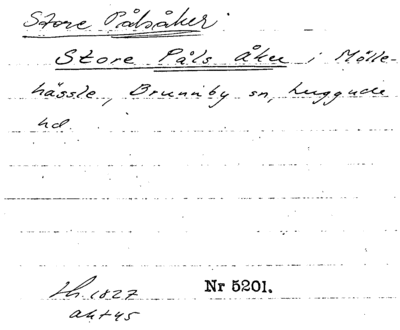 Store Pålsåker
Store Påls åker i Mölle-
hässle, Brunnby sn, Luggude
hd.
Nr 5201.
Lh. 1827
akt 45